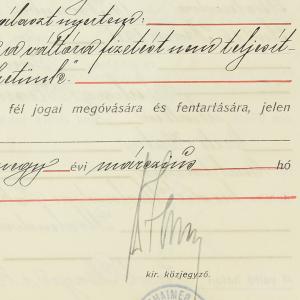 választ nyertem:
a váltóra fizetést nem teljesít-
hetünk".
fél jogai megóvására és fentartására, jelen
negy évi márczius hó
kir. közjegyző.